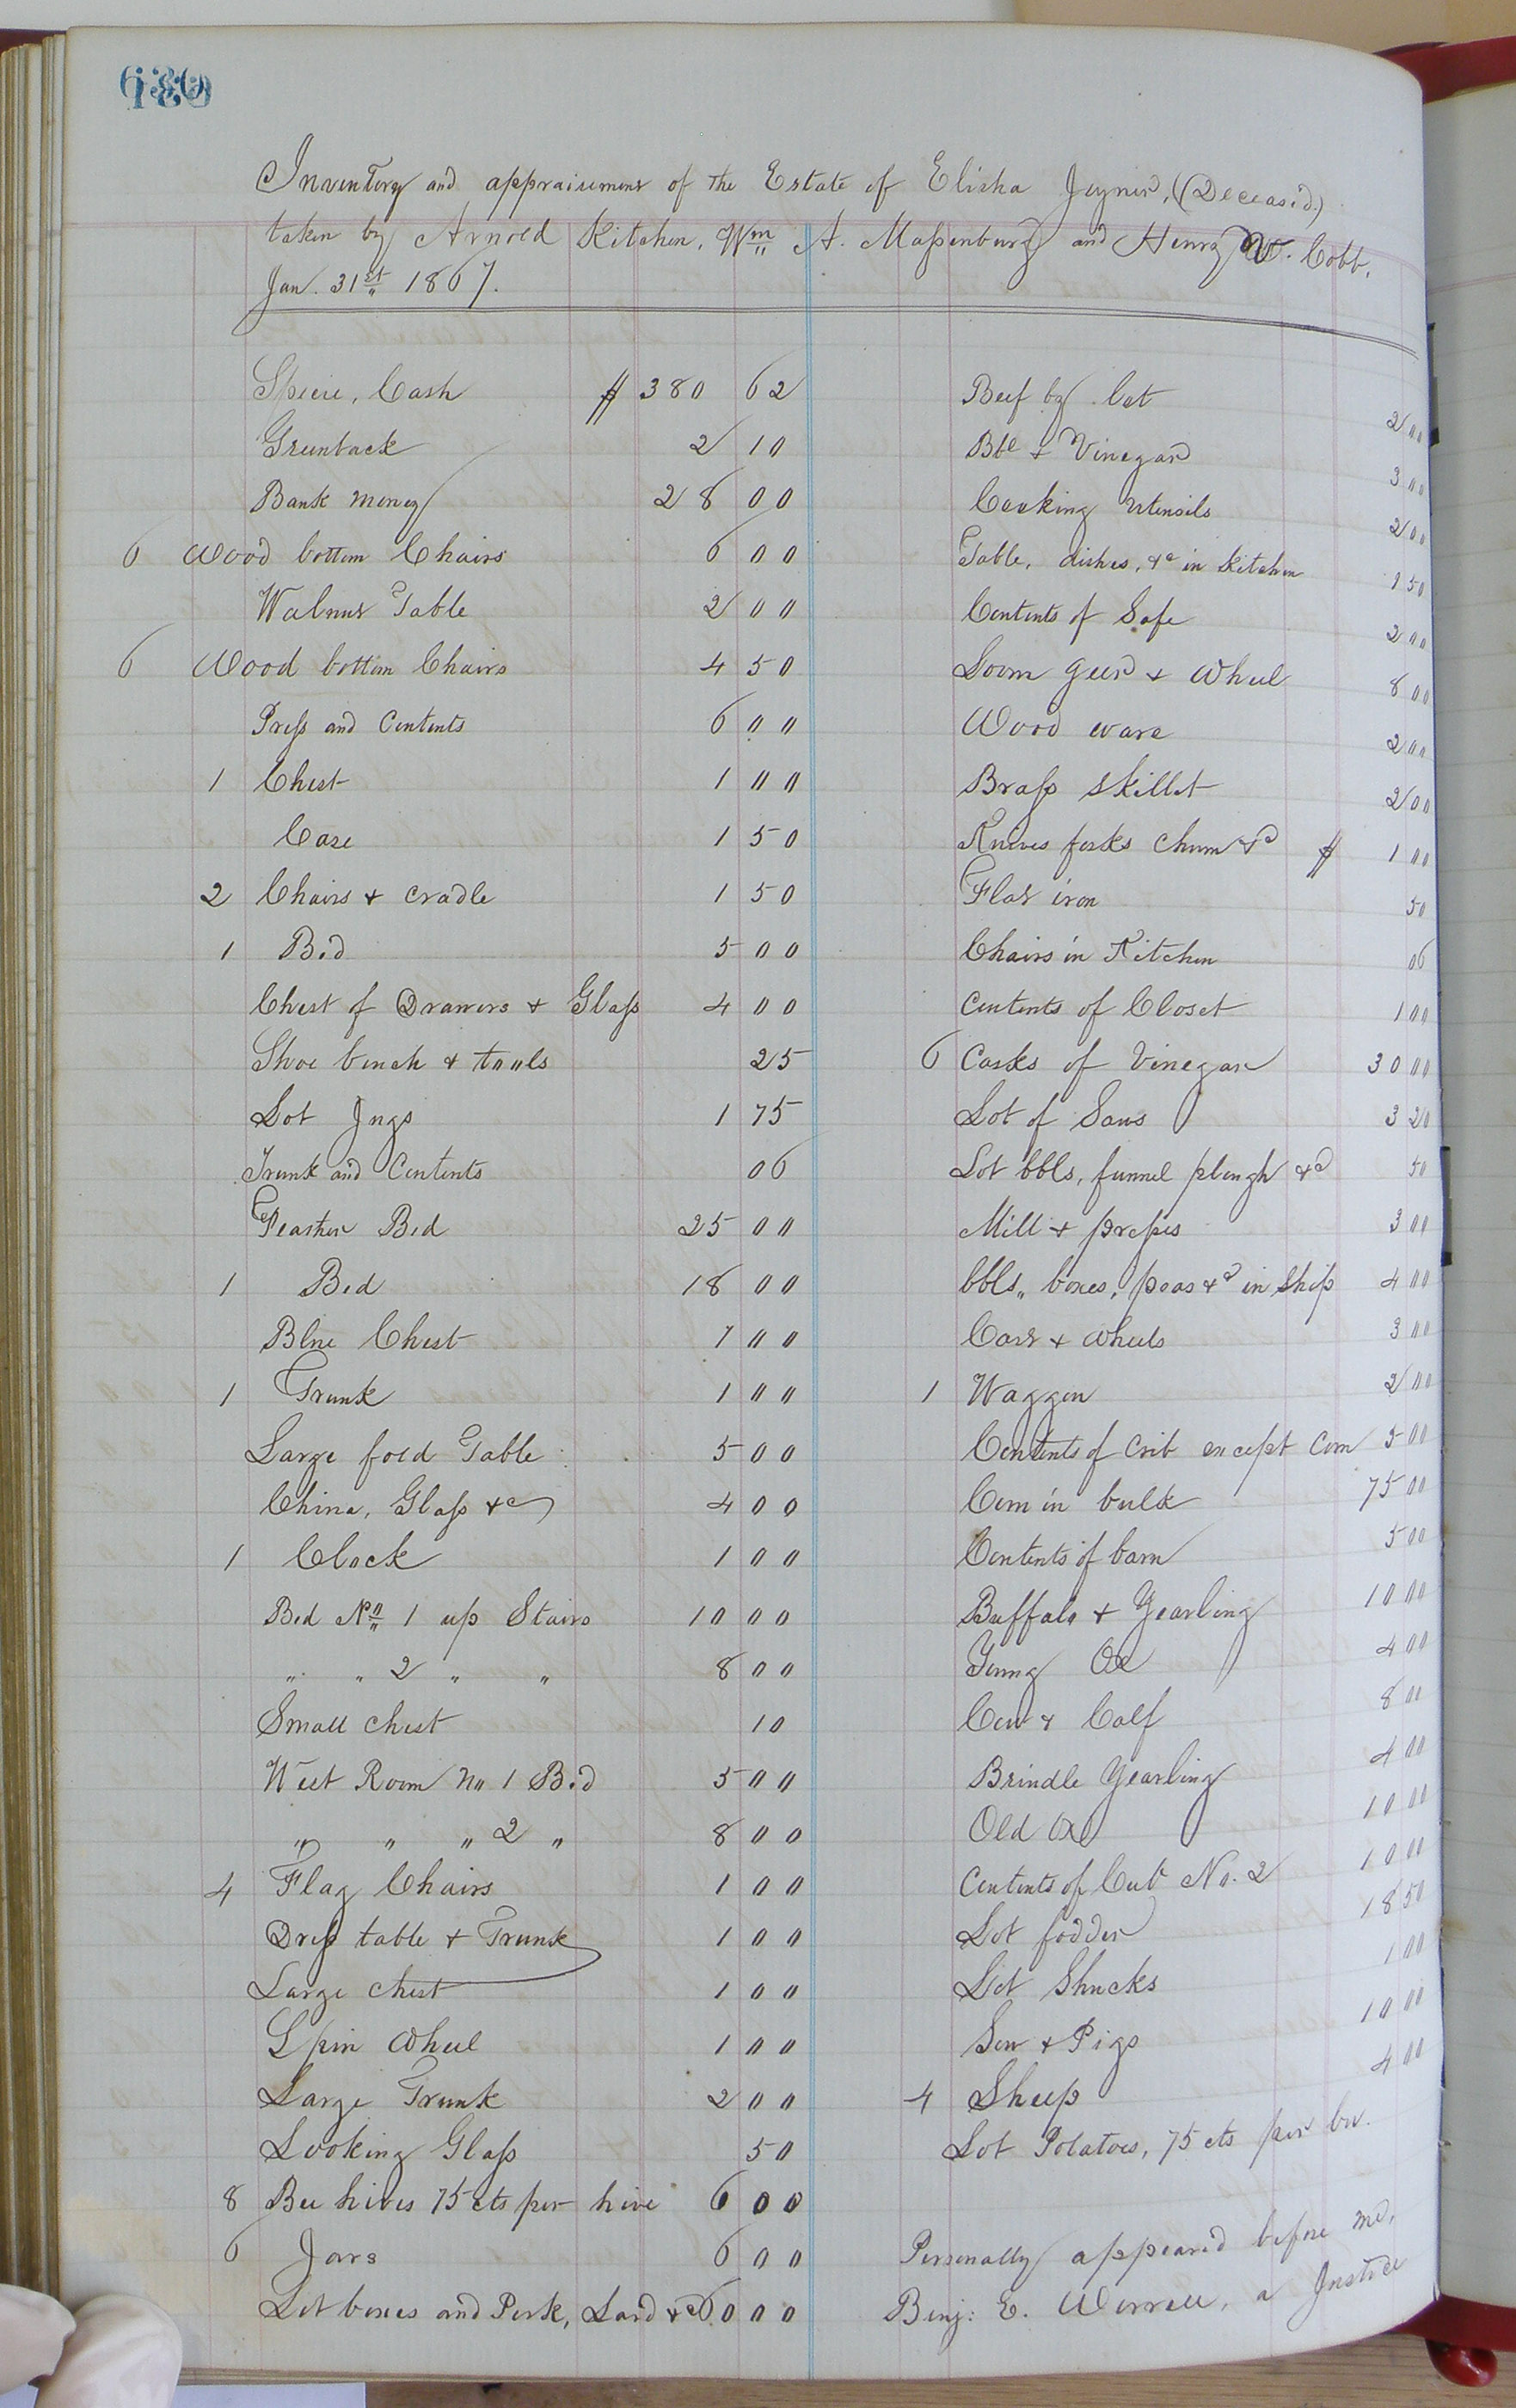 Inventory and appraisement of the Estate of Elisha Joyner, (Deceased.)
taken by Arnold Kitchen, Wm A. Massenburg and Henry W. Cobb,
Jan. 31st 1867.
Specie, Cash $ 380 62
Greenback 2 10
Bank money 28 00
6 Wood bottom Chairs 6 00
Walnut Table 2 00
6 Wood bottom Chairs 4 50
Press and Contents 6 00
1 Chest 1 00
Case 1 50
2 Chairs & cradle 1 50
1 Bed 5 00
Chest of Drawers & Glass 4 00
Shoe bench & tools 25
Lot Jugs 1 75
Trunk and Contents 06
Feather Bed 25 00
1 Bed 18 00
Blue Chest 1 00
1 Trunk 1 00
Large fold Table 5 00
China, Glass &c 4 00
1 Clock 1 00
Bed No 1 up Stairs 10 00
" " 2 " " 8 00
Small chest 10
West Room No 1 Bed 5 00
" " " 2 " 8 00
4 Flag Chairs 1 00
Dress table & Trunk 1 00
Large chest 1 00
Spin Wheel 1 00
Large Trunk 2 00
Looking Glass 50
8 Bee hives 75 cts per hive 6 00
6 Jars 6 00
Lot boxes and Pork, Lard &c 60 00
Beef by Cut 2 00
Bbl & Vinegar 3 00
Cooking utensils 2 00
Table, dishes, &c in Kitchen 1 50
Contents of Safe 2 00
Loom geer & Wheel 8 00
Wood ware 2 00
Brass skillet 2 00
Knives forks churn &c $ 1 00
Flat iron 50
Chairs in Kitchen 06
Contents of Closet 1 00
6 Casks of Vinegar 30 00
Lot of Saws 3 20
Lot bbls, funnel plough &c 50
Mill & presses 3 00
bbls, boxes, peas &c in Ship 4 00
Cart & Wheels 3 00
1 Waggon 2 00
Contents of Crib except Corn 5 00
Corn in bulk 75 00
Contents of barn 5 00
Buffalo & Yearling 10 00
Young Ox 4 00
Cow & Calf 8 00
Brindle Yearling 4 00
Old Ox 10 00
Contents of No. 2 10 00
Lot fodder 18 50
Lot Shucks 1 00
Sow & Pigs 10 00
4 Sheep 4 00
Lot Potatoes, 75 cts per bu.
Personally appeared before me,
Benj: E. Worrell, a Justice